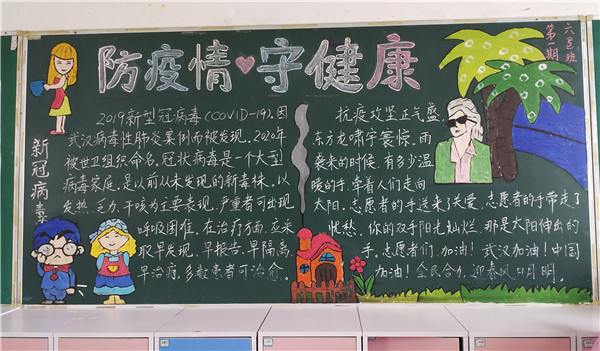 防疫情♥守健康
六(5)班
第一期
新冠病毒
2019新型冠病毒(COVID-19),因
武汉病毒性肺炎案例而被发现,2020年
被世卫组织命名。冠状病毒是一个大型
病毒家庭,是以前从未发现的新毒株。以
发热,乏力,干咳为主要表现,严重者可出现
呼吸困难。在治疗方面,应采
取早发现,早报告,早隔离,
早治疗,多数患者可治愈。
抗疫攻坚正气盛,
东方龙啸宇寰惊。雨
袭来的时候,有多少温
暖的手,牵着人们走向
太阳。志愿者的手送来了关爱,志愿者的手带走了
忧愁。你的双手阳光灿烂,那是太阳伸出的
手。志愿者们,加油!武汉加油!中国
加油!全民合力,迎春风日月明。